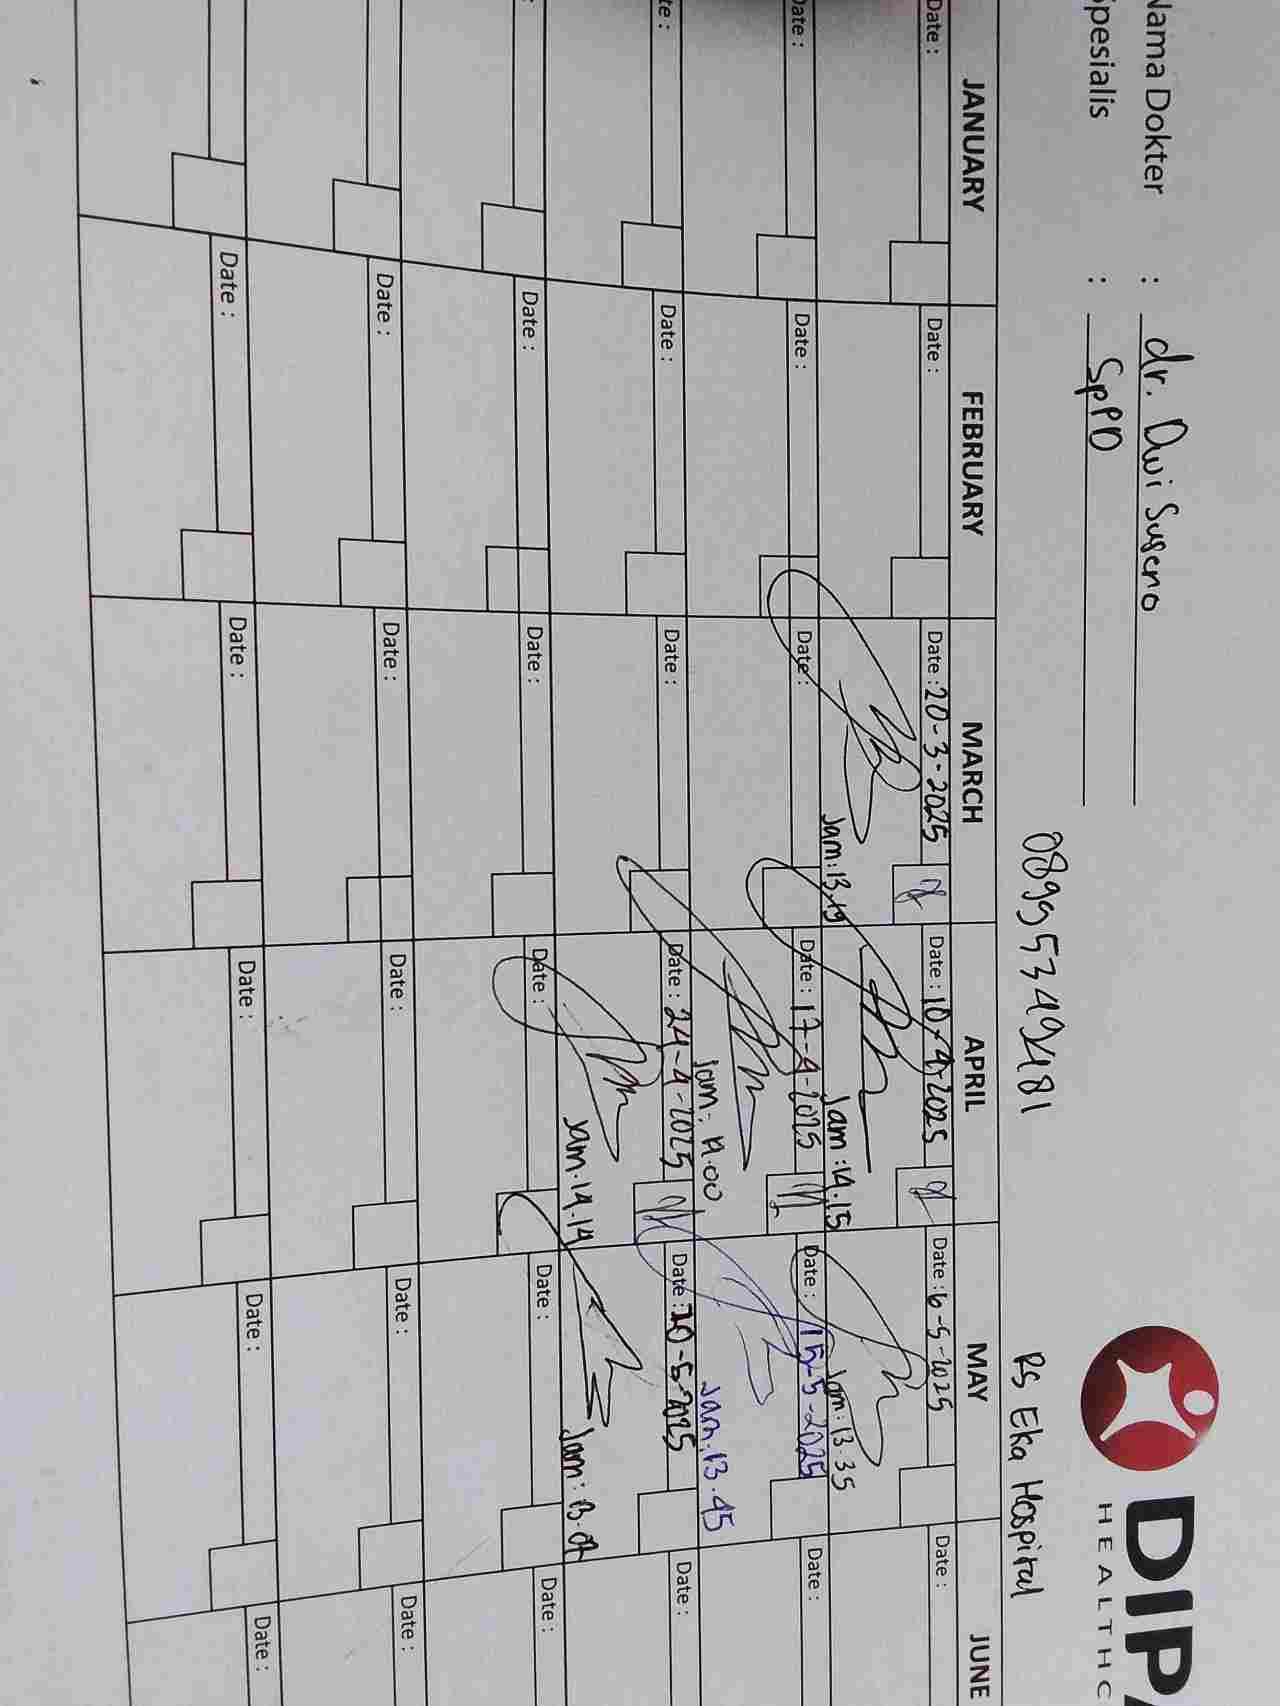 DIPA
HEALTHC
Nama Dokter : dr. Dwi Suseno
Spesialis : SpPD
08995349481 RS Eka Hospital
JANUARY FEBRUARY MARCH APRIL MAY JUNE
Date : Date : Date : 20-3-2025 Date : 10-4-2025 Date : 6-5-2025 Date :
Jam : 13.19 Jam : 14.15 Jam : 13 35
Date : Date : Date : Date : 17-4-2025 Date : 15-5-2025 Date :
Jam : 14.00 Jam : 13.45
Date : Date : Date : Date : 24-4-2025 Date : 20-5-2025 Date :
Jam. 14.14 Jam : 13.02
Date : Date : Date : Date : Date :
Date : Date : Date : Date : Date :
Date : Date : Date : Date : Date :